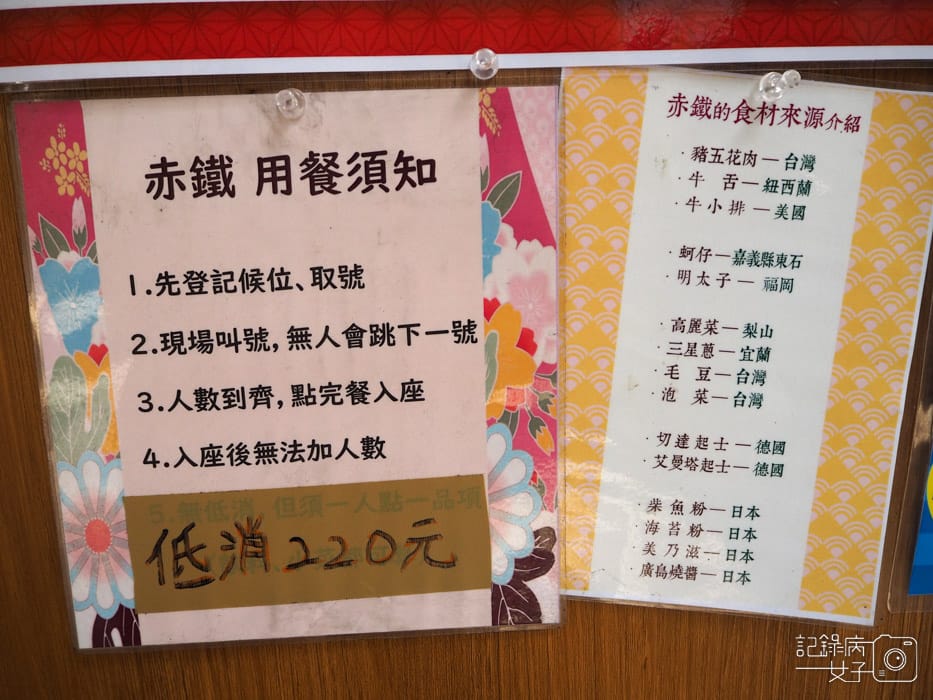 赤鐵 用餐須知
1.先登記候位、取號
2.現場叫號，無人會跳下一號
3.人數到齊，點完餐入座
4.入座後無法加人數
5.無低消，但須一人點一品項
低消220元
赤鐵的食材來源介紹
·豬五花肉—台灣
·牛 舌—紐西蘭
·牛小排—美國
·蚵仔—嘉義縣東石
·明太子—福岡
·高麗菜—梨山
·三星蔥—宜蘭
·毛 豆—台灣
·泡 菜—台灣
·切達起士—德國
·艾曼塔起士—德國
·柴魚粉—日本
·海苔粉—日本
·美乃滋—日本
·廣島燒醬—日本
記錄病
女子